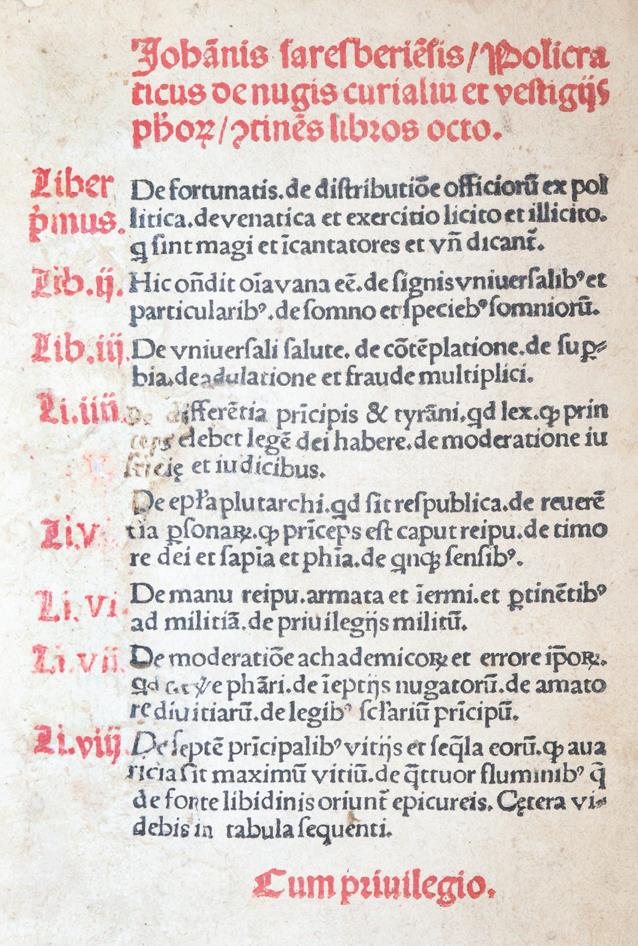 Johānis saresberiēsis/Policra
ticus de nugis curialiū et vestigijs
phōꝝ/ꝯtinēs libros octo.
Liber p̄mus. De fortunatis.de distributiōe officiorū ex pol
litica.de venatica et exercitio licito et illicito.
q̄ sint magi et īcantatores et vn̄ dicant̄.
Lib.ij. Hic on̄dit oīa vana eē.de signis vniuersalibꝰ et
particularibꝰ.de somno et speciebꝰ somniorū.
Lib.iij. De vniuersali salute. de cōtēplatione.de sup̱⸗
bia.de adulatione et fraude multiplici.
Li.iiij. De differētia prīcipis & tyrāni.qd lex.ꝙ prin
ceps debet legē dei habere.de moderatione iu
sticię et iudicibus.
Li.v. De epl̄a plutarchi.qd sit respublica.de reuerē
tia ꝑsonaꝝ.ꝙ prīceps est caput reipu.de timo
re dei et sapīa et phīa.de qnqꝫ sensibꝰ.
Li.vi. De manu reipu.armata et īermi.et ꝑtinētibꝰ
ad militiā.de priuilegijs militū.
Li.vij. De moderatiōe achademicoꝝ et errore ip̄oꝝ.
phāri.de īeptijs nugatorū.de amato
re diuitiarū.de legibꝰ sc̄lariū prīcipū.
Li.viij. De septē prīcipalibꝰ vitijs et seq̄la eorū.ꝙ aua
ricia sit maximū vitiū.de q̄ttuor fluminibꝰ q̄
de fonte libidinis oriunt̄ epicureis. Cętera vi⸗
debis in tabula sequenti.
Cum priuilegio.